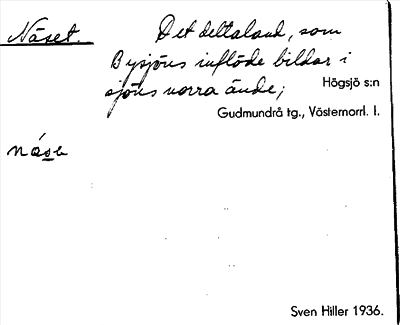 Näset.
Det deltaland, som
Bysjöns inflöde bildar i
sjöns norra ände;
Högsjö s:n
Gudmundrå tg., Västernorrl. l.
Sven Hiller 1936.